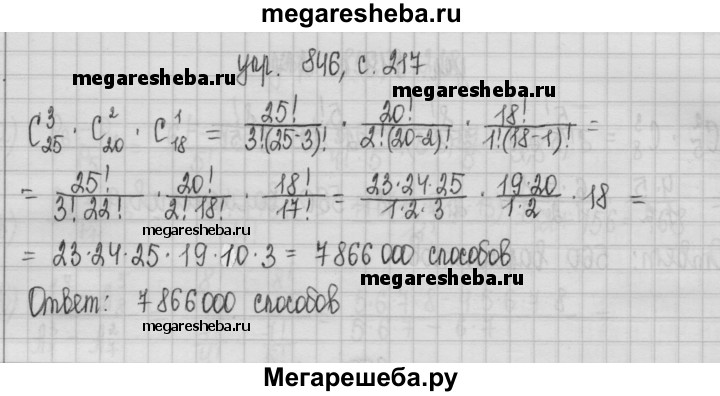 megaresheba.ru
упр. 846, с. 217
megaresheba.ru
megaresheba.ru
C³₂₅ · C²₂₀ · C¹₁₈ = 25!/3!(25-3)! · 20!/2!(20-2)! · 18!/1!(18-1)! =
= 25!/3! 22! · 20!/2! 18! · 18!/17! = 23·24·25/1·2·3 · 19·20/1·2 · 18 =
megaresheba.ru
= 23·24·25·19·10·3 = 7866000 способов
megaresheba.ru
Ответ: 7866000 способов
megaresheba.ru
Мегарешеба.ру